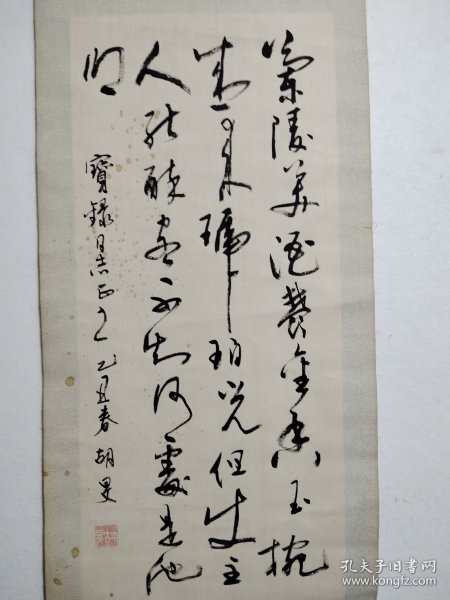 蘭陵美酒鬱金香玉椀
盛来琥珀光但使主
人能醉客不知何處是他
鄉
寶録同志正之 乙丑春 胡旻
孔夫子旧书网
www.kongfz.com